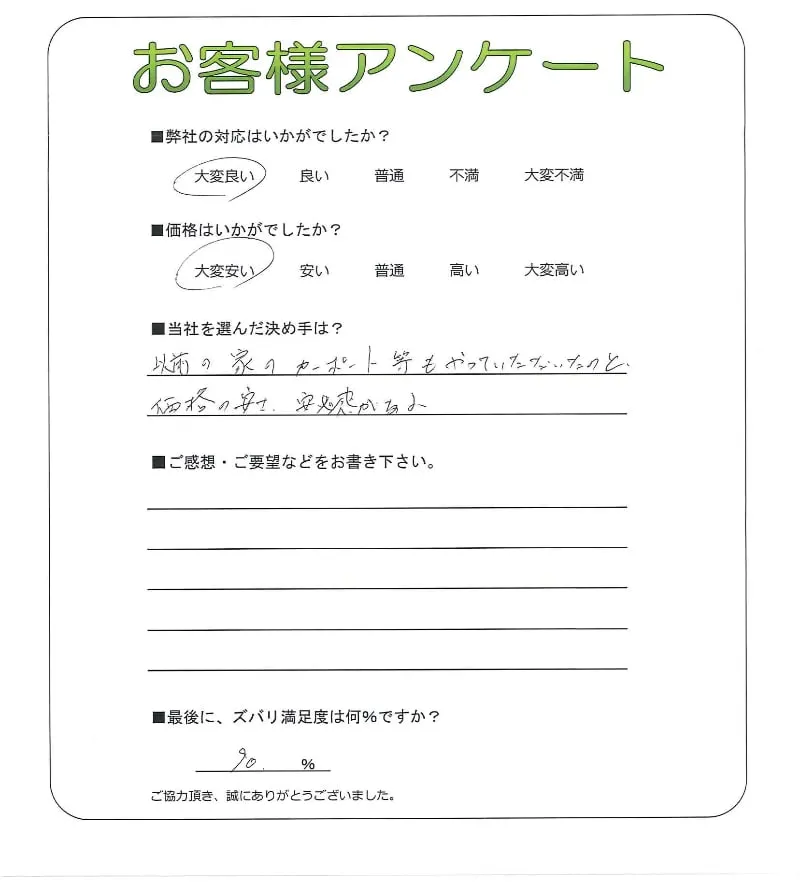 お客様アンケート
■弊社の対応はいかがでしたか？
大変良い 良い 普通 不満 大変不満
■価格はいかがでしたか？
大変安い 安い 普通 高い 大変高い
■当社を選んだ決め手は？
以前の家のカーポート等もやっていただいたのと、
価格の安さ、安心感がある
■ご感想・ご要望などをお書き下さい。
■最後に、ズバリ満足度は何％ですか？
90. %
ご協力頂き、誠にありがとうございました。